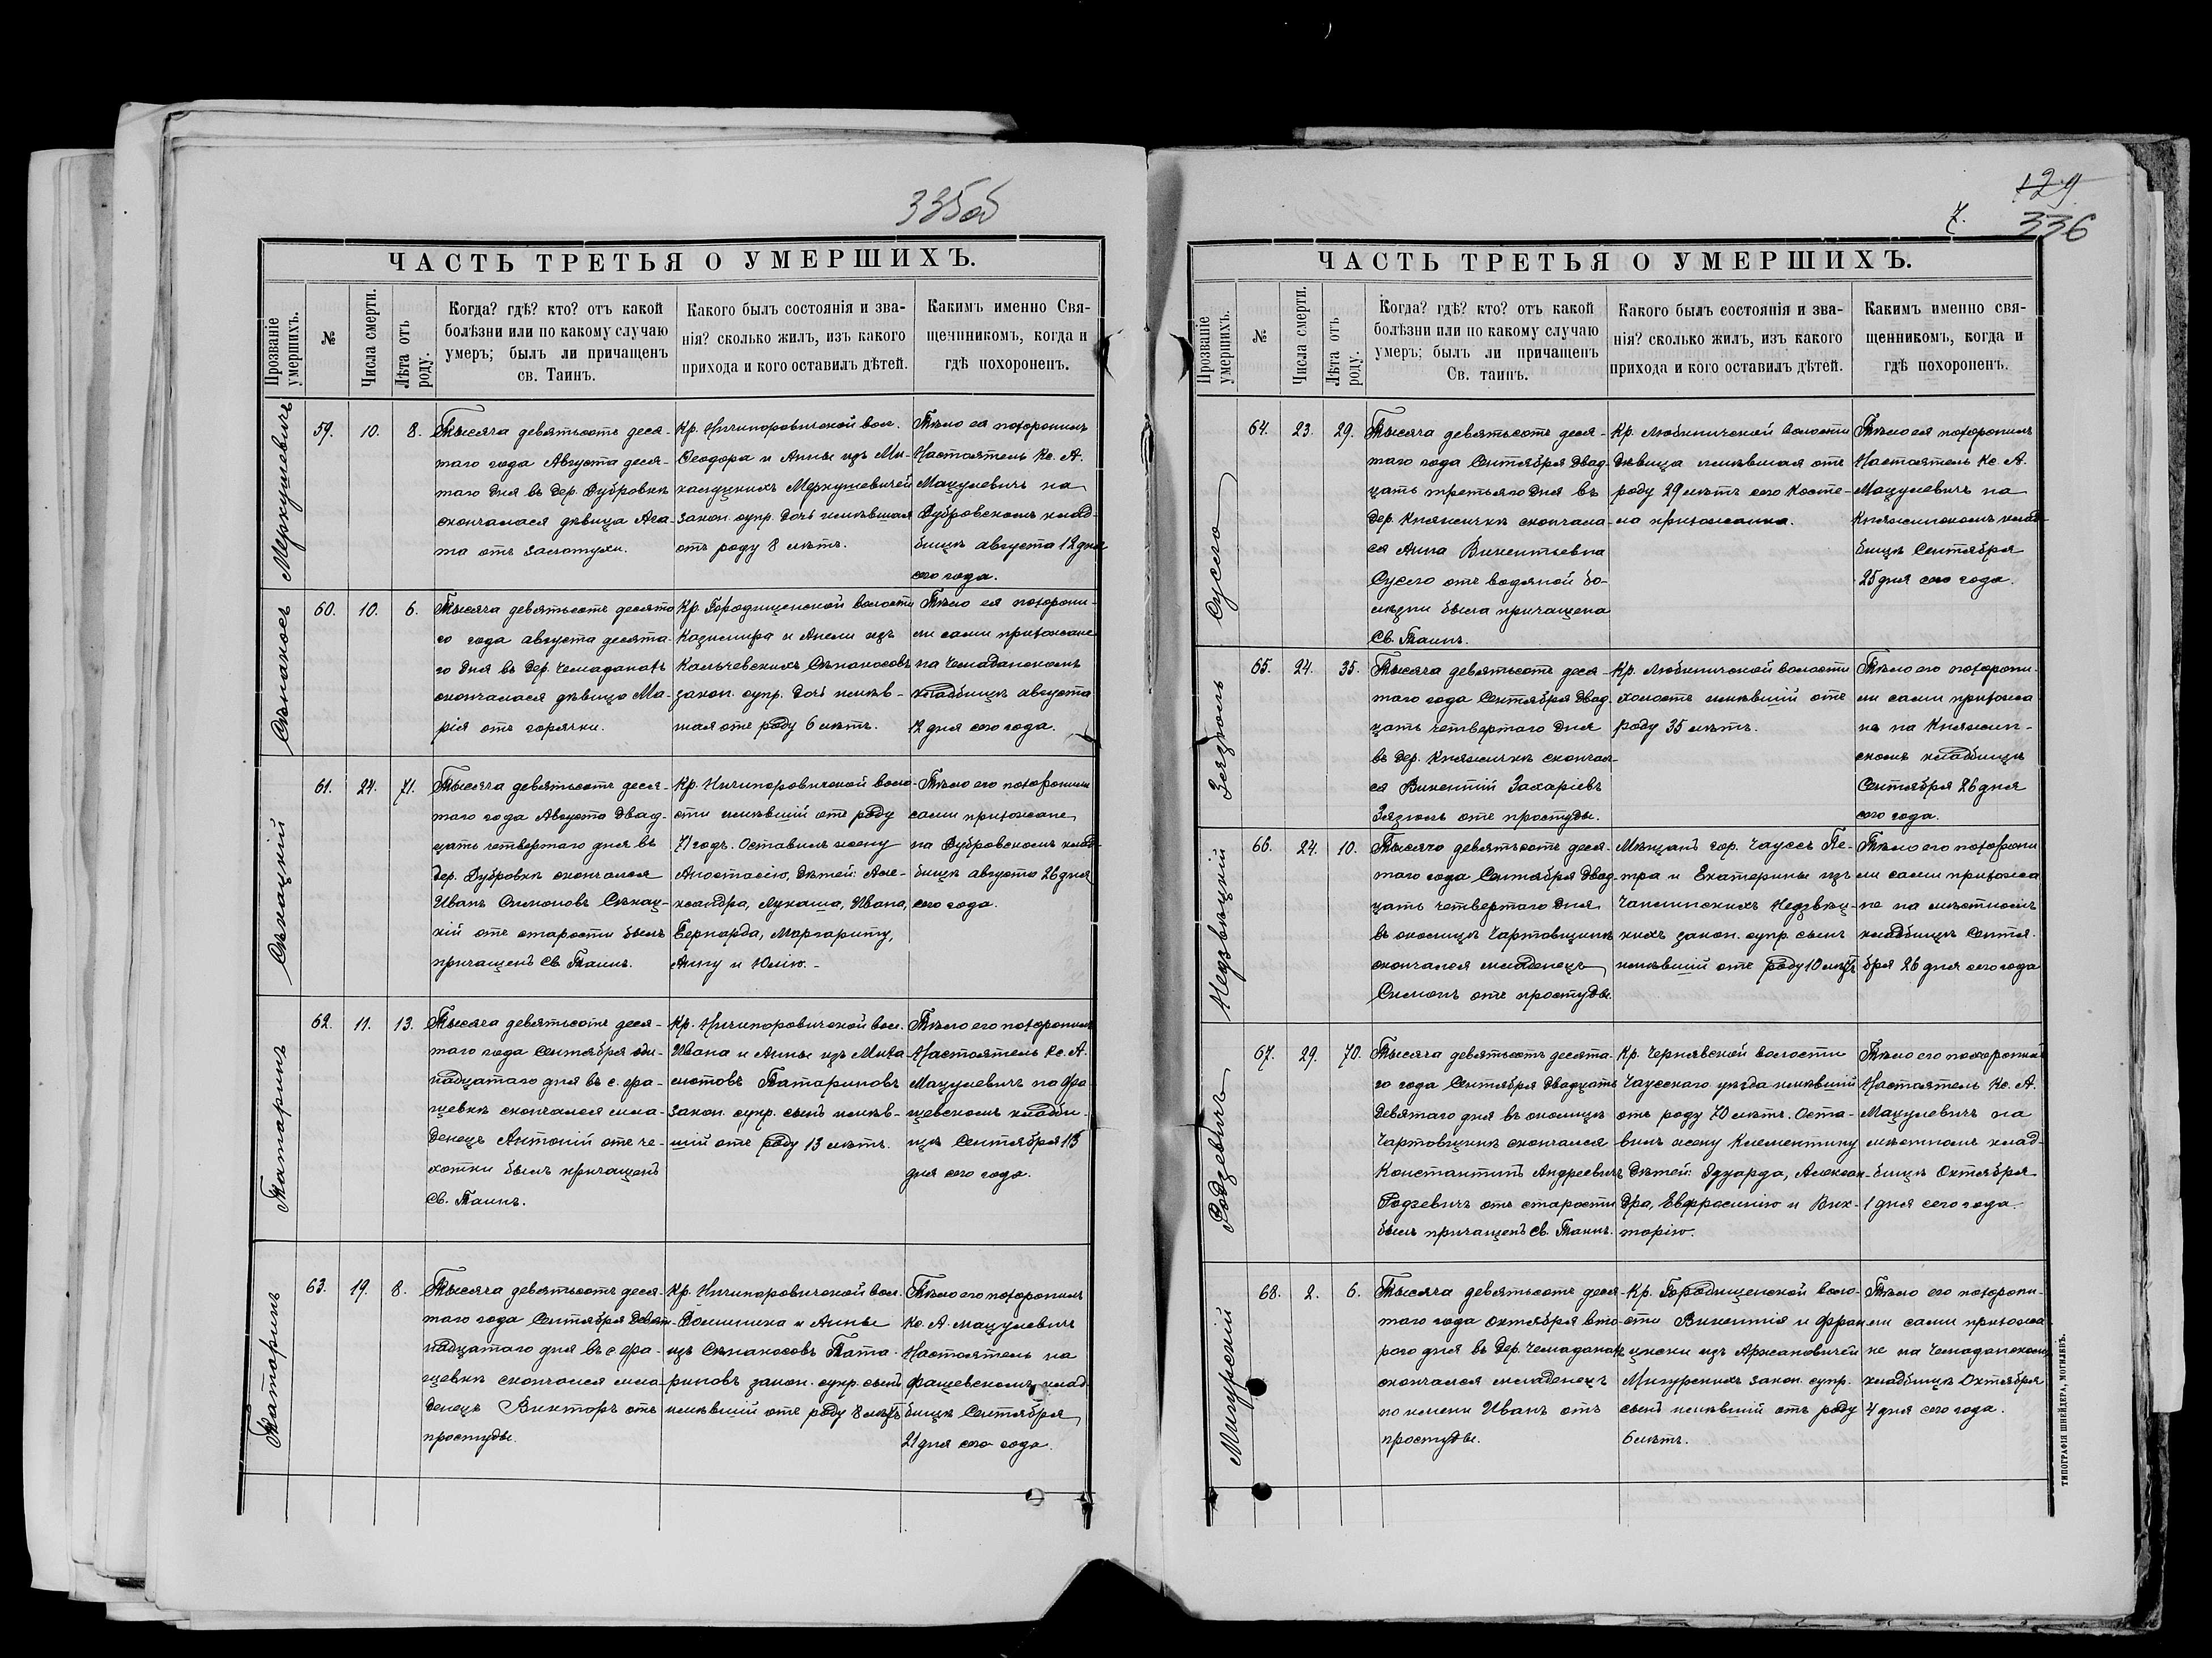 335об
ЧАСТЬ ТРЕТЬЯ О УМЕРШИХЪ.
Прозваніе умершихъ.
№
Числа смерти.
Лѣта отъ роду.
Когда? гдѣ? кто? отъ какой
болѣзни или по какому случаю
умеръ; былъ ли причащенъ
св. Таинъ.
Какого былъ состоянія и зва-
нія? сколько жилъ, изъ какого
прихода и кого оставилъ дѣтей.
Каким­ъ именно Свя-
щенникомъ, когда и
гдѣ похороненъ.
Меркулевичъ
59.
10.
8.
Тысяча девятьсотъ деся-
таго года Августа деся-
таго дня въ дер. Дубровкѣ
скончалася дѣвица Ага-
та отъ золотухи.
Кр. Ничипоровичской вол.
Ѳеодора и Анны изъ Ми-
халуцкихъ Меркулевичей
закон. супр. дочь имѣвшая
отъ роду 8 лѣтъ.
Тѣло ея похоронилъ
Настоятель Кс. А.
Мацулевичъ на
Дубровскомъ клад-
бищѣ августа 12 дня
сего года.
Сѣнокосъ
60.
10.
6.
Тысяча девятьсотъ десято
го года августа десята-
го дня въ дер. Чемоданахъ
скончалася дѣвица Ма-
рія отъ горячки.
Кр. Городищенской волости
Казимира и Анели изъ
Кольчевскихъ Сѣнокосовъ
закон. супр. дочь имѣв-
шая отъ роду 6 лѣтъ.
Тѣло ея похорони-
ли сами прихожане
на Чемоданскомъ
кладбищѣ августа
12 дня сего года.
Сѣкацкій
61.
24.
71.
Тысяча девятьсотъ деся-
таго года Августа двад-
цать четвертаго дня въ
дер. Дубровкѣ скончался
Иванъ Симоновъ Сѣкац-
кій отъ старости былъ
причащенъ Св. Таинъ.
Кр. Ничипоровичской воло-
сти имѣвшій отъ роду
71 годъ. Оставилъ жену
Анастасію, дѣтей: Але-
ксандра, Лукаша, Ивана,
Бернарда, Маргариту,
Анну и Юлію.-
Тѣло его похоронили
сами прихожане
на Дубровскомъ клад-
бищѣ августа 26 дня
сего года.
Татаринъ
62.
11.
13.
Тысяча девятьсотъ деся-
таго года Сентября оди-
надцатаго дня въ с. Фра-
щевкѣ скончался мла-
денецъ Антоній отъ че-
хотки былъ причащенъ
Св. Таинъ.
Кр. Ничипоровичской вол.
Ивана и Анны изъ Миха-
систовъ Татариновъ
закон. супр. сынъ имѣв-
шій отъ роду 13 лѣтъ.
Тѣло его похоронилъ
Настоятель Кс. А.
Мацулевичъ на Фра
щевскомъ кладби-
щѣ Сентября 13
дня сего года.
Татаринъ
63.
19.
8.
Тысяча девятьсотъ деся-
таго года Сентября девят-
надцатаго дня въ с Фра-
щевкѣ скончался мла-
денецъ Викторъ отъ
простуды.
Кр. Ничипоровичской вол.
Доминика и Анны
изъ Сѣнокосовъ Тата-
риновъ закон. супр. сынъ
имѣвшій отъ роду 8 лѣтъ
Тѣло его похоронилъ
Кс. А. Мацулевичъ
Настоятель на
Фащевскомъ клад-
бищѣ Сентября
21 дня сего года.
129
336
ЧАСТЬ ТРЕТЬЯ О УМЕРШИХЪ.
Прозваніе умершихъ.
№
Числа смерти.
Лѣта отъ роду.
Когда? гдѣ? кто? отъ какой
болѣзни или по какому случаю
умеръ; былъ ли причащенъ
Св. таинъ.
Какого былъ состоянія и зва-
нія? сколько жилъ, изъ какого
прихода и кого оставилъ дѣтей.
Какимъ именно свя-
щенникомъ, когда и
гдѣ похороненъ.
Сусло
64.
23.
29.
Тысяча девятьсотъ деся-
таго года Сентября двад-
цать третьяго дня въ
дер. Княжичкѣ скончала-
ся Анна Викентьевна
Сусло отъ водяной бо-
лѣзни была причащена
Св. Таинъ.
Кр. Любиничской волости
дѣвица имѣвшая отъ
роду 29 лѣтъ сего Косте-
ла прихожанка.
Тѣло ея похоронилъ
Настоятель Кс. А.
Мацулевичъ на
Княжинскомъ клад-
бищѣ Сентября
25 дня сего года.
Зязюль
65.
24.
35.
Тысяча девятьсотъ деся-
таго года Сентября двад-
цать четвертаго дня
въ дер. Княжичкѣ скончал-
ся Викентій Захаріевъ
Зязюль отъ простуды.
Кр. Любиничской волости
холостъ имѣвшій отъ
роду 35 лѣтъ.
Тѣло его похорони-
ли сами прихожа
не на Княжин-
скомъ кладбищѣ
Сентября 26 дня
сего года.
Недзвѣцкій
66.
24.
10.
Тысяча девятьсотъ деся-
таго года Сентября двад-
цать четвертаго дня
въ околицѣ Чартовщинѣ
скончался младенецъ
Симонъ отъ простуды.
Мѣщанъ гор. Чаусъ Пе-
тра и Екатерины изъ
Чаплинскихъ Недзвѣц-
кихъ закон. супр. сынъ
имѣвшій отъ роду 10 лѣтъ
Тѣло его похорони
ли сами прихожа
не на мѣстномъ
кладбищѣ Сентя-
бря 26 дня сего года
Родзевичъ
67.
29.
70.
Тысяча девятьсотъ десята-
го года Сентября двадцать
девятаго дня въ околицѣ
Чартовщинѣ скончался
Константинъ Андреевичъ
Родзевичъ отъ старости
былъ причащенъ Св. Таинъ.
Кр. Чернявской волости
Чаусскаго уѣзда имѣвшій
отъ роду 70 лѣтъ. Оста-
вилъ жену Клементину
Дѣтей: Эдуарда, Алексан-
дра, Евфросинію и Вик-
торію.
Тѣло его похоронилъ
Настоятель Кс. А.
Мацулевичъ на
мѣстномъ клад-
бищѣ Октября
1 дня сего года.
Мигурскій
68.
2.
6.
Тысяча девятьсотъ деся-
таго года октября вто-
рого дня въ дер. Чемоданахъ
скончался младенецъ
по имени Иванъ отъ
простуды.
Кр. Городищенской воло-
сти Викентія и Фран-
циски изъ Аржановичей
Мигурскихъ закон. супр.
сынъ имѣвшій отъ роду
6 лѣтъ.
Тѣло его похорони-
ли сами прихожа
не на Чемоданскомъ
кладбищѣ Октября
4 дня сего года.
ТИПОГРАФІЯ ШНЕЙДЕРА, МОГИЛЕВЪ.